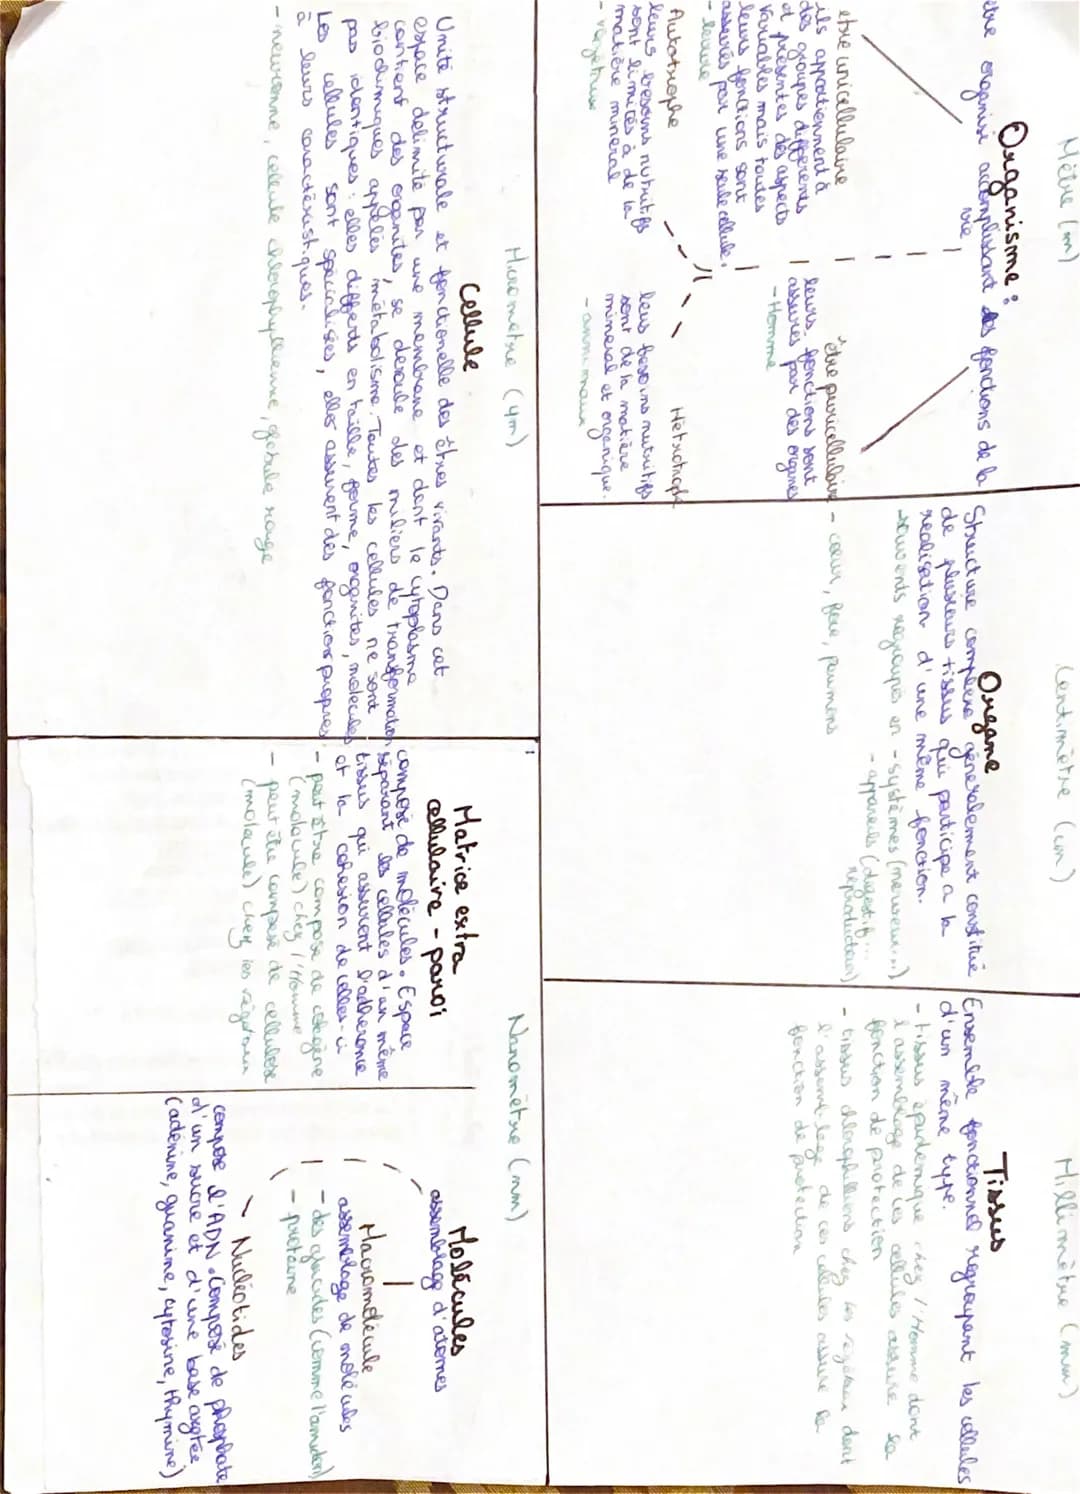 Mètre (m)
Organisme :
être organisé accomplissant des fonctions de la
vie,
être unicellulaire
ils appartiennent à
des groupes differents
et présentes des aspects
variables mais toutes
leurs fonctions sont
assurées par une seule cellule.
- levure
être pluricellulaire
leurs fonctions sont
assures par des organes
- Homme
Autotrophe
leurs besoins nutritifs
sont limités à de la
matière mineral
- végétaux
Hétérotrophe
leurs besoins nutritifs
sont de la matière
mineral et organique.
- animaux
Centimètre (cm)
Organe
Structure complexe généralement constitué
de plusieurs tissus qui participe a la
realisation d'une même fonction.
souvents regroupés en - systèmes (nerveux...)
- appareils (digestif...
reproducteur)
- cœur, foie, poumons
Millimètre (mm)
Tissus
Ensemble fonctionnel regroupant les cellules
d'un même type.
- tissus épidermique chez l'Homme dont
l'assemblage de ces cellules assure sa
fonction de protection
- tissus chlorophilliens chez les végétaux dont
l'assemblage de ces cellules assure la
fonction de protection
Micromètre (µm)
Cellule
Unité structurale et fonctionelle des êtres vivants. Dans cet
espace délimité par une membrane et dont le cytoplasme
contient des organites, se deroule des miliers de transformation
biochimiques appelés métabolisme. Toutes les cellules ne sont
pas identiques : elles differts en taille, forme, organites, molécules
Les cellules sont spécialisées, elles assurent des fonctions propres
à leurs caractéristiques.
- neuronne, cellule chlorophyllienne, globule rouge
Nanomètre (nm)
Matrice extra
cellulaire - paroi
composé de molécules. Espace
séparant les cellules d'un même
tissus qui assurent l'adherance
et la cohesion de celles-ci
- peut être compose de collagène
(molécule) chez l'Homme
- peut être compose de cellulose
(molécule) chez les végétaux
Molécules
assemblage d'atomes
Macromolécule
assemblage de molécules
- des glucides (comme l'amidon)
- protéine
Nucléotides
compose l'ADN. Composé de phosphate
d'un sucre et d'une base azotée
(adénine, guanine, cytosine, thymine)